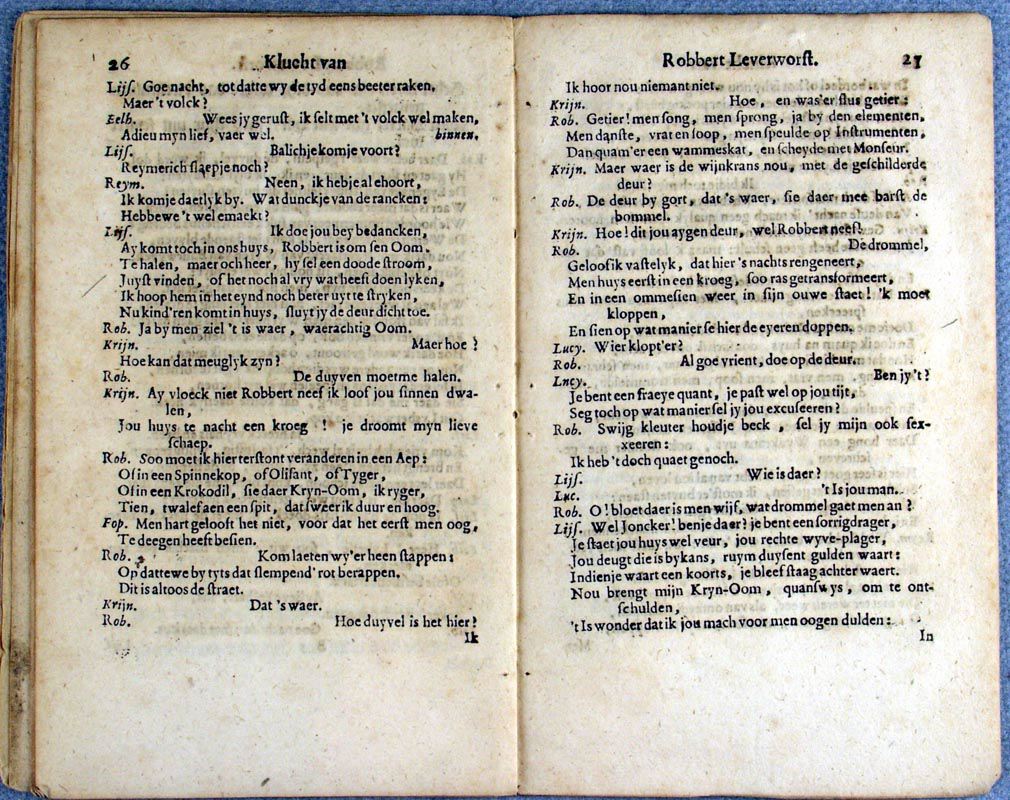 26 Klucht van
Lijs. Goe nacht, tot datte wy de tyd eens beeter raken,
Maer 't volck?
Eelb. Wees jy gerust, ik selt met 't volck wel maken,
Adieu myn lief, vaer wel. binnen.
Lijs. Balichje komje voort?
Reymerich slaepje noch?
Reym. Neen, ik hebje al ehoort,
Ik komje daetlyk by. Wat dunckje van de rancken:
Hebbewe 't wel emaekt?
Lijs. Ik doe jou bey bedancken,
Ay komt toch in ons huys, Robbert is om sen Oom.
Te halen, maer och heer, hy sel een doode stroom,
Juyst vinden, of het noch al vry wat heeft doen lyken,
Ik hoop hem in het eynd noch beter uyt te stryken,
Nu kind'ren komt in huys, sluyt jy de deur dicht toe.
Rob. Ja by men ziel 't is waer, waerachtig Oom.
Krijn. Maer hoe?
Hoe kan dat meuglyk zyn?
Rob. De duyven moet me halen.
Krijn. Ay vloeck niet Robbert neef ik loof jou sinnen dwa-
len,
Jou huys te nacht een kroeg! je droomt myn lieve
schaep.
Rob. Soo moet ik hier terstont veranderen in een Aep:
Of in een Spinnekop, of Olifant, of Tyger,
Of in een Krokodil, sie daer Kryn-Oom, ik ryger,
Tien, twalef aen een spit, dat sweer ik duur en hoog.
Fop. Men hart gelooft het niet, voor dat het eerst men oog,
Te deegen heeft besien.
Rob. Kom laeten wy'er heen stappen:
Op dattewe by tyts dat slempend' rot berappen.
Dit is altoos de straet.
Krijn. Dat 's waer.
Rob. Hoe duyvel is het hier?
Ik
Robbert Leverworst. 27
Ik hoor nou niemant niet.
Krijn. Hoe, en was'er flus getier:
Rob. Getier! men song, men sprong, ja by den elementen,
Men danste, vrat en soop, men speulde op Instrumenten,
Dan quam'er een wammeskat, en scheyde met Monseur.
Krijn. Maer waer is de wijnkrans nou, met de geschilderde
deur?
Rob. De deur by gort, dat 's waer, sie daer mee barst de
bommel.
Krijn. Hoe! dit jou aygen deur, wel Robbert neef!
Rob. De drommel,
Geloof ik vastelyk, dat hier 's nachts rengeneert,
Men huys eerst in een kroeg, soo ras getransformeert,
En in een ommesien weer in sijn ouwe staet! 'k moet
kloppen,
En sien op wat manier se hier de eyeren doppen.
Lucy. Wier klopt'er?
Rob. Al goe vrient, doe op de deur.
Lucy. Ben jy 't?
Je bent een fraeye quant, je past wel op jou tijt,
Seg toch op wat manier sel jy jou excuseeren?
Rob. Swijg kleuter houdje beck, sel jy mijn ook sex-
xeeren:
Ik heb 't doch quaet genoch.
Lijs. Wie is daer?
Luc. 't Is jou man.
Rob. O! bloet daer is men wijf, wat drommel gaet men an?
Lijs. Wel Joncker! benje daer? je bent een sorrigdrager,
Je staet jou huys wel veur, jou rechte wyve-plager,
Jou deugt die is bykans, ruym duysent gulden waart:
Indien je waart een koorts, je bleef staag achter waert.
Nou brengt mijn Kryn-Oom, quanswys, om te ont-
schulden,
't Is wonder dat ik jou mach voor men oogen dulden:
In